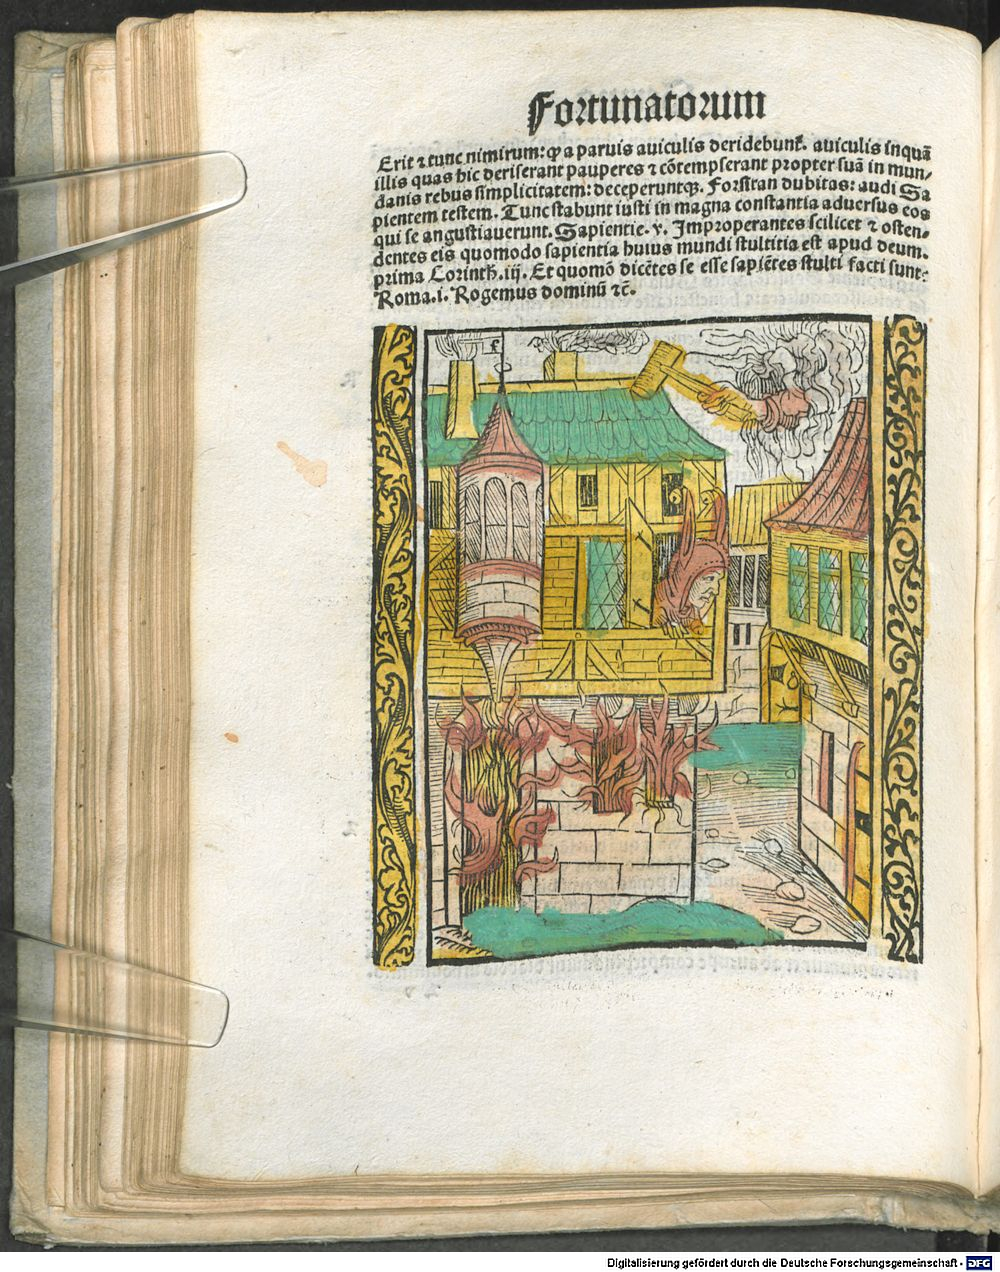 Fortunatorum
Erit ⁊ tunc nimirum: ꝙ a parvis aviculis deridebunt᷑. aviculis inquā
illis quas hic deriserant pauperes ⁊ cōtempserant propter suā in mun⸗
danis rebus simplicitatem: deceperuntqꝫ. Forsitan dubitas: audi Sa
pientem testem. Tunc stabunt iusti in magna constantia adversus eos
qui se angustiaverunt. Sapientie. v. Improperantes scilicet ⁊ osten⸗
dentes eis quomodo sapientia huius mundi stultitia est apud deum.
prima Corinth. iij. Et quomō dicētes se esse sapiētes stulti facti sunt:
Roma. i. Rogemus dominū ⁊c̄.
Digitalisierung gefördert durch die Deutsche Forschungsgemeinschaft - DFG